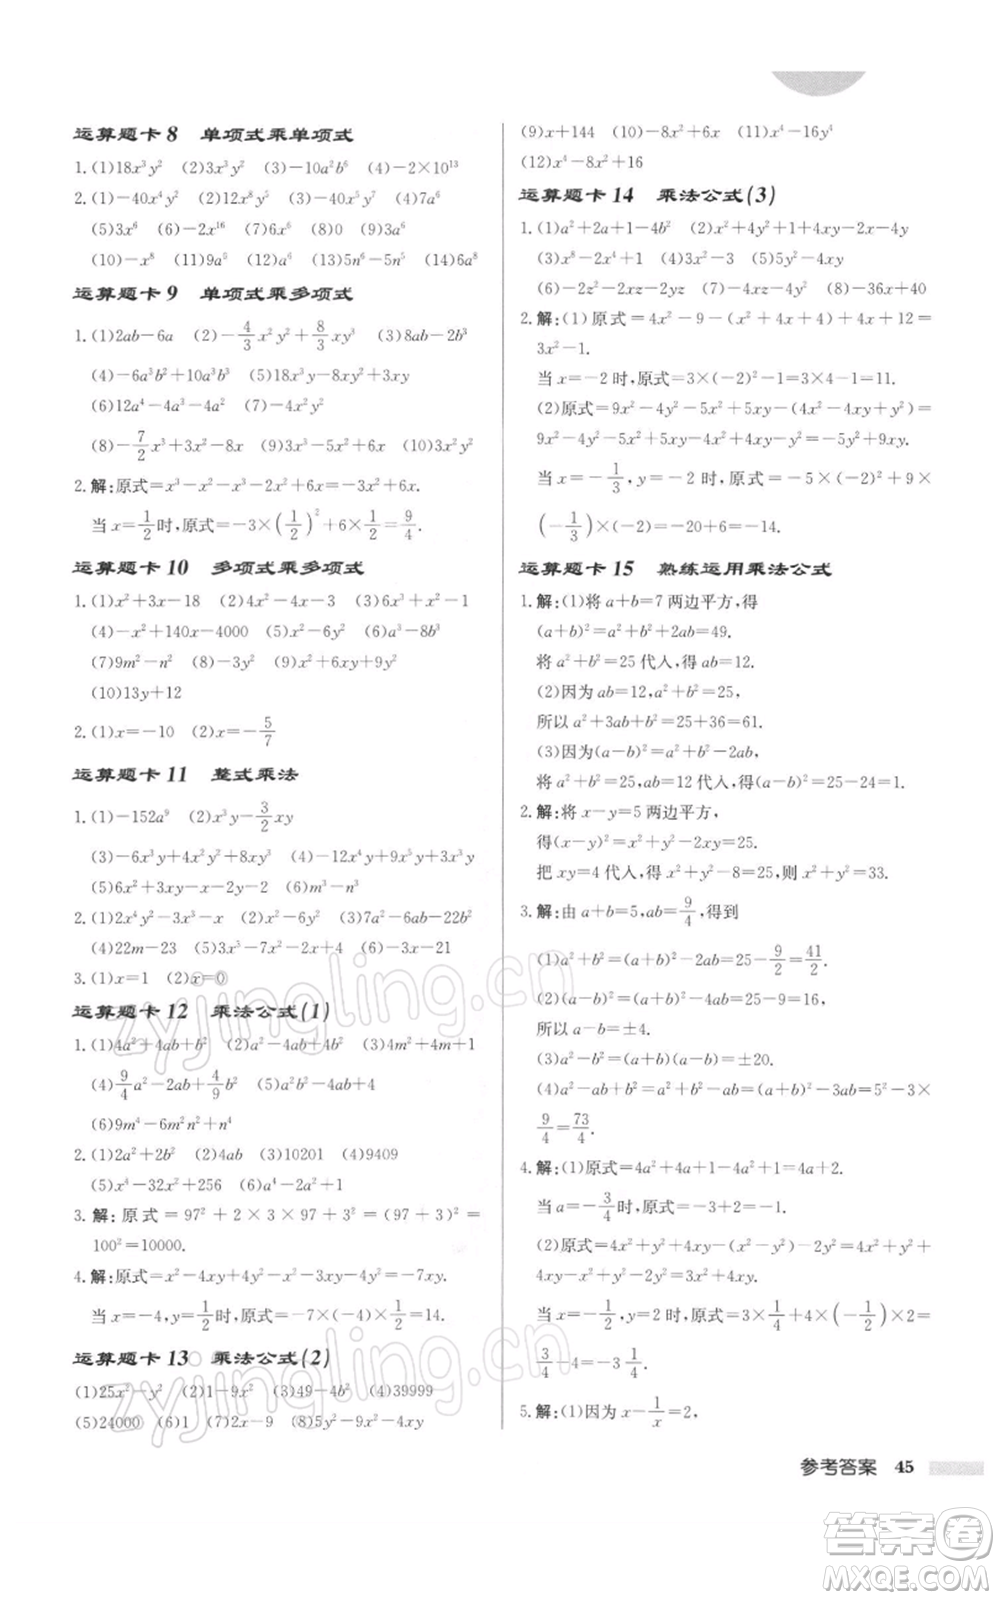 运算题卡8 单项式乘单项式
1.(1)18x³y² (2)3x³y³ (3)-10a²b⁶ (4)-2×10¹³
2.(1)-40x⁴y² (2)12x⁸y⁷ (3)-40x⁵y⁷ (4)7a⁶
(5)3x⁶ (6)-2x¹⁶ (7)-90x³y⁷ (8)0 (9)4x⁶
(10)-x⁸ (11)9a⁵ (12)-8a⁸ (13)5n⁶-5n⁵ (14)6a⁸
运算题卡9 单项式乘多项式
1.(1)2ab-6a (2)-4/3x²y²+8/3xy³ (3)8ab²-4b³
(4)-6a³b²+10a³b³ (5)-3x²y-2xy²+3xy
(6)12a⁴-4a³-4a² (7)-4x²y²
(8)-7/2x³+3x²-8x (9)-5x³-2x²+6x (10)3x²y²
2.解:原式=x³-x²-x³-2x²+6x=-3x²+6x.
当x=1/2时,原式=-3×(1/2)²+6×1/2=9/4.
运算题卡10 多项式乘多项式
1.(1)x²+3x-18 (2)4x²-4x-3 (3)6x²+x-1
(4)-x²+140x-4000 (5)-2x²-6 (6)a³-8b³
(7)9m²-m-2 (8)-3y-2 (9)-7x²+6xy+y²
(10)13y+12
2.(1)x=-10 (2)x=-5/7
运算题卡11 整式乘法
1.(1)-152a⁹ (2)x³y-3/2xy
(3)-6x³y+4x²y²+8xy³ (4)-12x⁴y+9x³y+3x²y
(5)6x²+3xy-x-2y-2 (6)m³-n³
2.(1)2x⁴-2x³-3x²-x (2)-8x² (3)7a²-6ab-22b²
(4)22m-23 (5)3x⁵-7x⁴-2x³+2x²+4x
3.(1)x=1 (2)x=0
运算题卡12 乘法公式(1)
1.(1)4a²+4ab+b² (2)a²-4ab+4b² (3)4m²+4m+1
(4)9/4a²-2ab+4/9b² (5)-4a²b²-4ab+1
(6)9m⁴-6m²n²+n⁴
2.(1)2a²+2b² (2)4ab (3)10201 (4)9409
(5)x⁴-32x²+256 (6)a⁴-2a²+1
3.解:原式=97²+2×3×97+3²=(97+3)²=
100²=10000.
4.解:原式=x²-4xy+4y²-(x²+3xy+4y²)=-7xy.
当x=-4,y=1/2时,原式=-7×(-4)×1/2=14.
运算题卡13 乘法公式(2)
(1)25x²-y² (2)1-9x² (3)49-4x² (4)39999
(5)24000 (6)1 (7)2x-9 (8)5x²+4xy-5y²
(9)x+144 (10)-8x²+6x (11)x⁴-16y⁴
(12)x⁴-8x²+16
运算题卡14 乘法公式(3)
1.(1)a²+2a+1-4b² (2)x²+4y²+1+4xy-2x-4y
(3)x⁸-2x⁴+1 (4)3x²-3 (5)2xy+2y²
(6)-2z²-2xz-2yz (7)-9y² (8)-36x+40
2.解:(1)原式=4x²-9-(x²+4x+4)+4x+12=
3x²-1.
当x=-2时,原式=3×(-2)²-1=11.
(2)原式=9x²-4y²-5x²+5xy-(4x²-4xy+y²)=
9x²-4y²-5x²+5xy-4x²+4xy-y²=-5y²+9xy.
当x=-1/3,y=-2时,原式=-5×(-2)²+9×
(-1/3)×(-2)=-20+6=-14.
运算题卡15 熟练运用乘法公式
1.解:(1)将a+b=7两边平方,得
(a+b)²=a²+b²+2ab=49.
将a²+b²=25代入,得ab=12.
(2)因为ab=12,a²+b²=25,
所以a²+3ab+b²=25+36=61.
(3)因为(a-b)²=a²+b²-2ab,
将a²+b²=25,ab=12代入,得(a-b)²=25-24=1.
2.解:将x-y=5两边平方,
得(x-y)²=x²+y²-2xy=25.
把xy=4代入,得x²+y²-8=25,则x²+y²=33.
3.解:由a+b=5,ab=9/4,得到
(1)a²+b²=(a+b)²-2ab=25-9/2=41/2.
(2)(a-b)²=(a+b)²-4ab=25-9=16,
所以a-b=±4.
(3)a²-b²=(a+b)(a-b)=±20.
(4)a²-ab+b²=(a+b)²-3ab=5²-3×
9/4=73/4.
4.解:(1)原式=4a²+4a+1-4a²+1=4a+2.
当a=-3/4时,原式=-3+2=-1.
(2)原式=4x²+y²+4xy-(4x²-y²)-x²-y²+
4xy-x²-3xy+2x²=4xy.
参考答案 45
答案圈
MXQE.COM
zyjingling.cn
zyjingling.cn